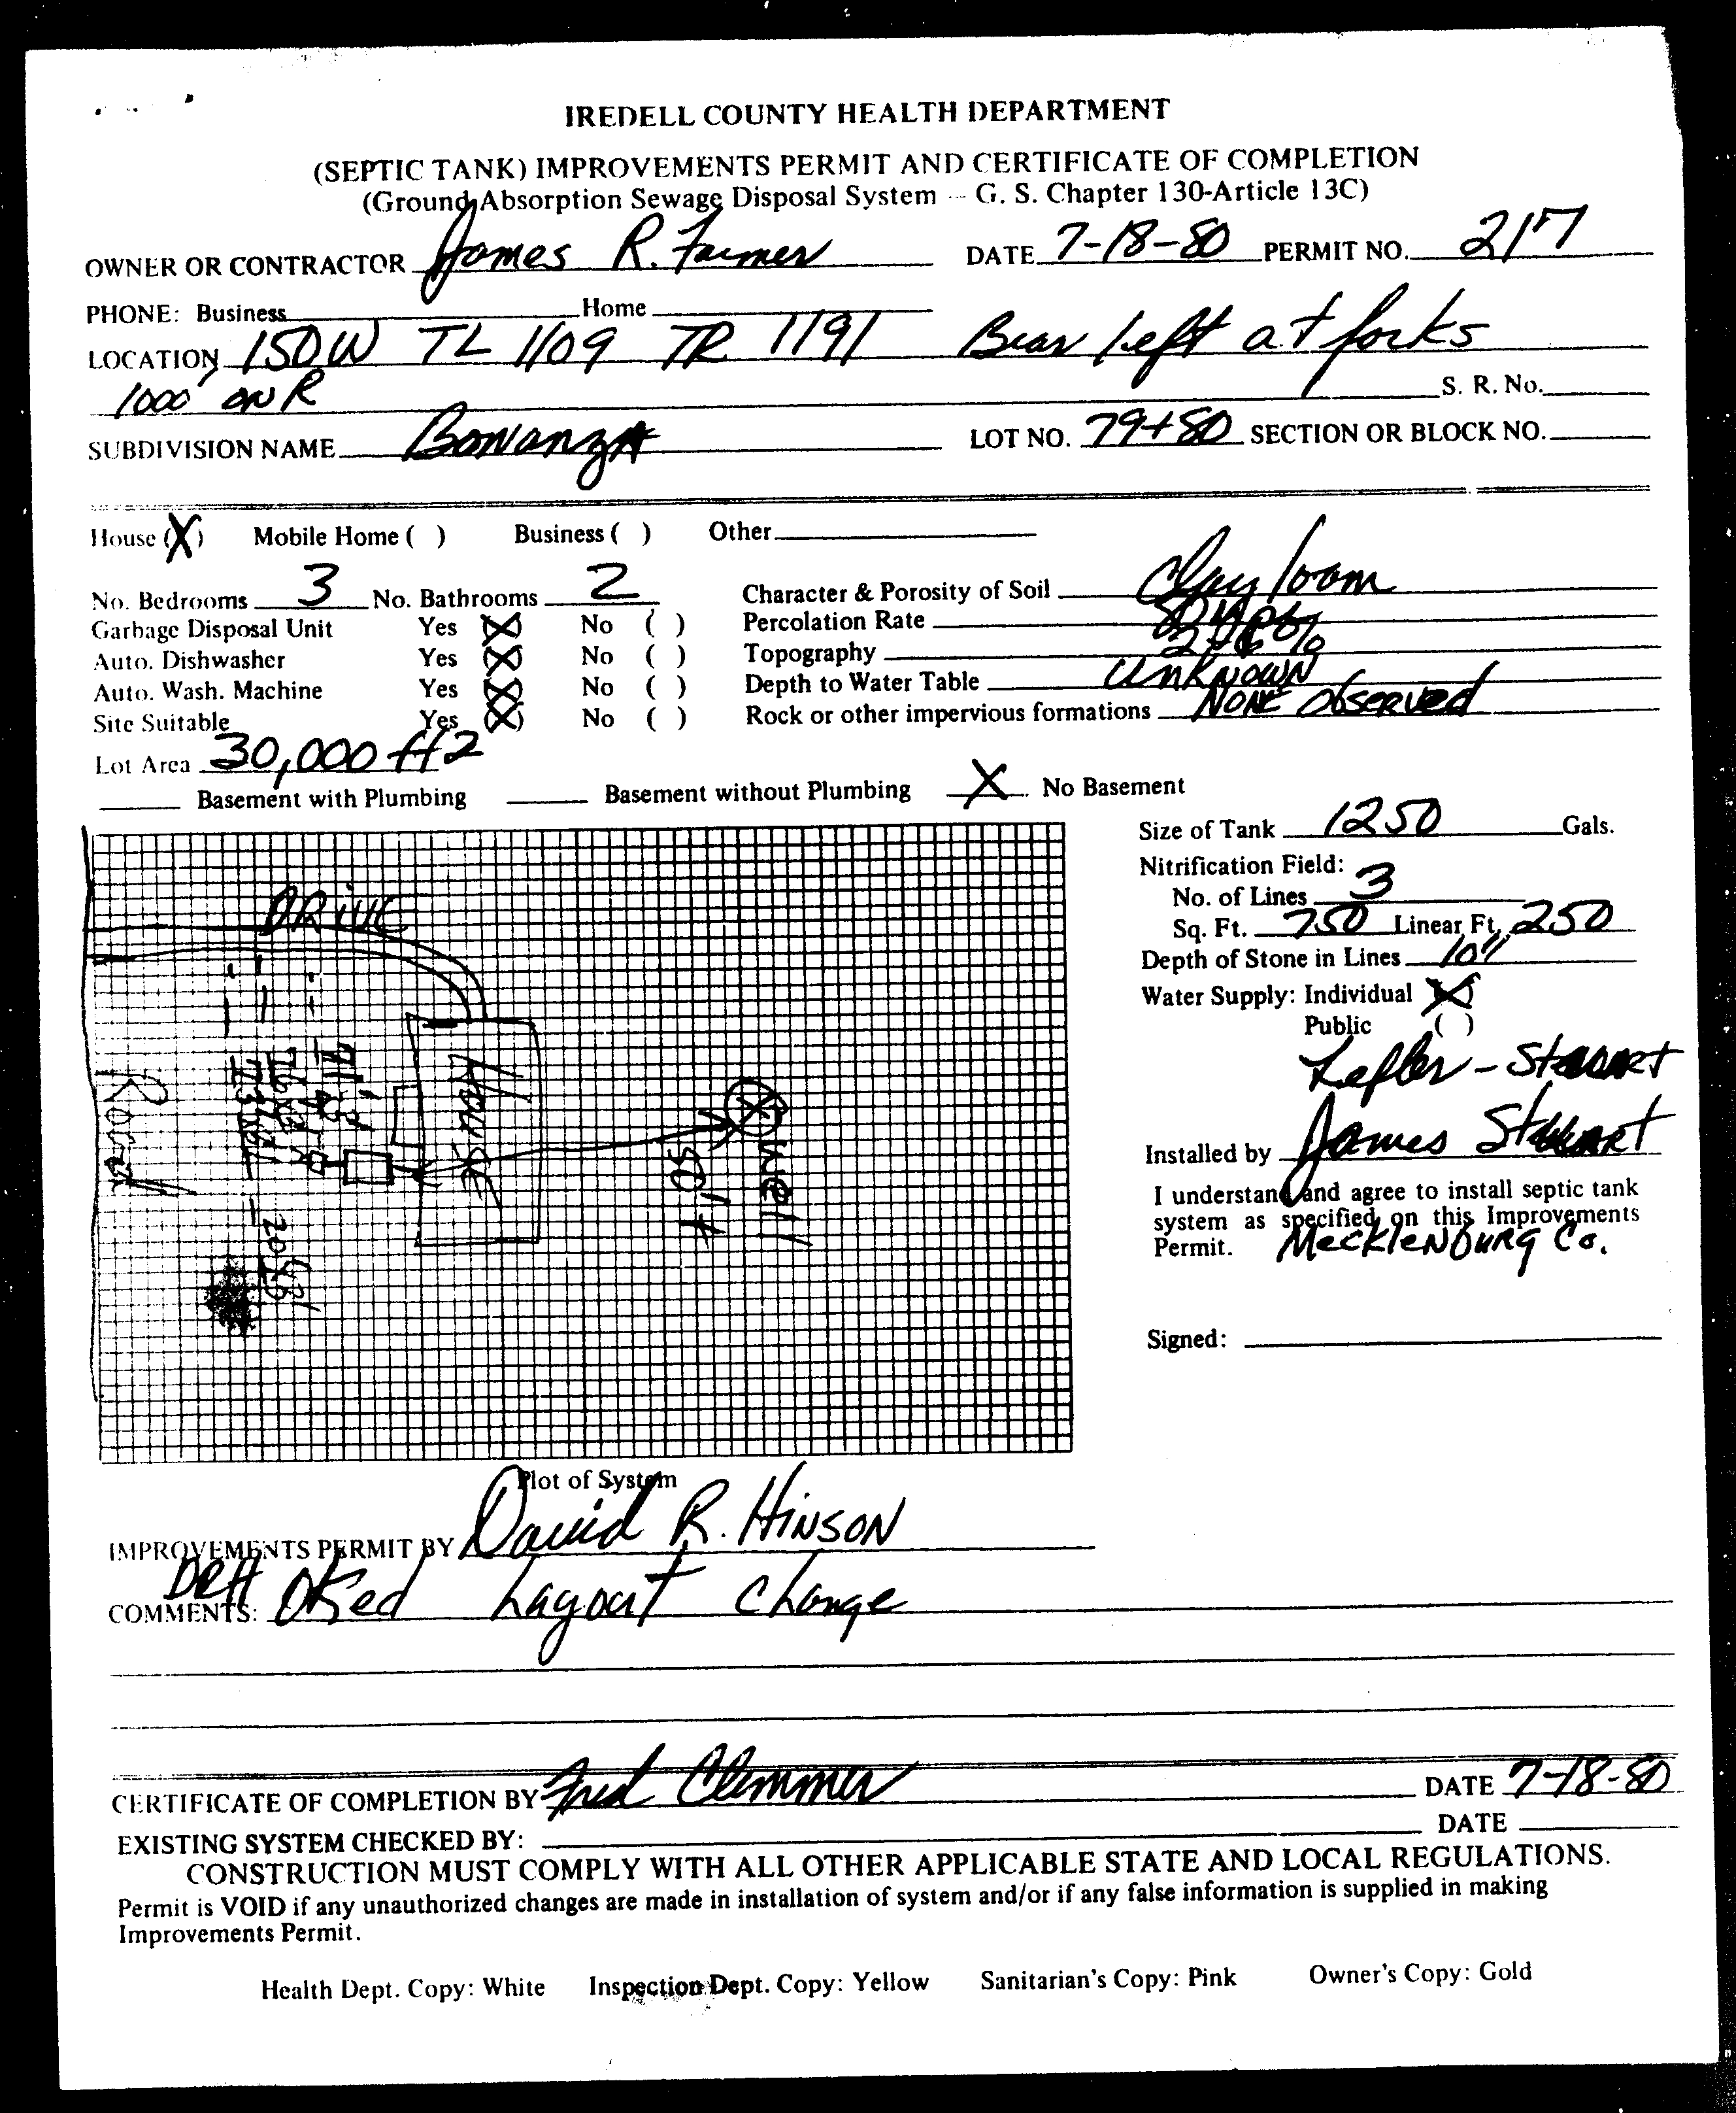 IREDELL COUNTY HEALTH DEPARTMENT
(SEPTIC TANK) IMPROVEMENTS PERMIT AND CERTIFICATE OF COMPLETION
(Ground Absorption Sewage Disposal System -- G. S. Chapter 130-Article 13C)
OWNER OR CONTRACTOR James R. Farmer DATE 7-18-80 PERMIT NO. 217
PHONE: Business Home
LOCATION 150W TL 1109 TR 1191 Bear left at forks
1000' ON R S. R. No.
SUBDIVISION NAME Bonanza LOT NO. 79+80 SECTION OR BLOCK NO.
House (X) Mobile Home ( ) Business ( ) Other
No. Bedrooms 3 No. Bathrooms 2 Character & Porosity of Soil Clay loam
Garbage Disposal Unit Yes (X) No ( ) Percolation Rate
Auto. Dishwasher Yes (X) No ( ) Topography 2-6%
Auto. Wash. Machine Yes (X) No ( ) Depth to Water Table Unknown
Site Suitable Yes (X) No ( ) Rock or other impervious formations None Observed
Lot Area 30,000 ft2
Basement with Plumbing Basement without Plumbing X No Basement
Size of Tank 1250 Gals.
Nitrification Field:
No. of Lines 3
Sq. Ft. 750 Linear Ft. 250
Depth of Stone in Lines 10"
Water Supply: Individual (X)
Public ( )
Lefler - Stewart
Installed by James Stewart
I understand and agree to install septic tank
system as specified on this Improvements
Permit. Mecklenburg Co.
Signed:
DRIVE
Road
House
Well
50'+
Plot of System
IMPROVEMENTS PERMIT BY David R. Hinson
COMMENTS: DRH OKed Layout change
CERTIFICATE OF COMPLETION BY Fred Clemmer DATE 7-18-80
EXISTING SYSTEM CHECKED BY: DATE
CONSTRUCTION MUST COMPLY WITH ALL OTHER APPLICABLE STATE AND LOCAL REGULATIONS.
Permit is VOID if any unauthorized changes are made in installation of system and/or if any false information is supplied in making
Improvements Permit.
Health Dept. Copy: White Inspection Dept. Copy: Yellow Sanitarian's Copy: Pink Owner's Copy: Gold